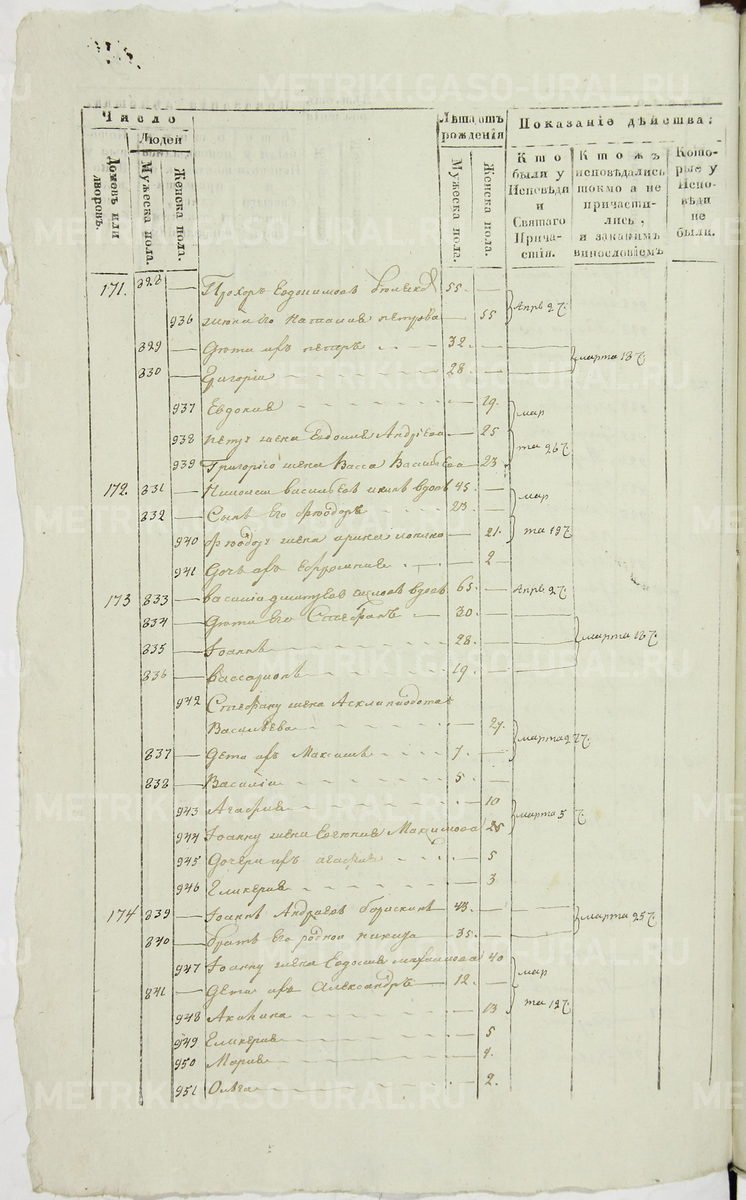 METRIKI.GASO-URAL.RU
Число
Людей
Домовъ или дворовъ.
Мужеска пола.
Женска пола.
Лѣта отъ рожденія
Мужеска пола.
Женска пола.
Показаніе дѣйства:
Кто были у Исповѣди и Святаго Причастія.
Кто жъ исповѣдались токмо а не причастились, и закакимъ винословіемъ
Которые у Исповѣди не были.
171. 828 Прохоръ Евдокимовъ 55.
936 жена его Наталия петрова 55 Апрѣ 2 ч.
829 Дѣти ихъ петръ 32. марта 13 ч.
830 Григоріи 28.
937 Евдокия 19. мар
938 петру жена Андрѣева 25 та 26 ч.
939 Григорію жена Васса Васильева 23.
172. 831 васильевъ вдовъ 45. мар
832 Сынъ Его Фѳодоръ 23.
940 Фѳодору жена ирина 21. та 19 ч.
941 Дочь ихъ Ефросиния 2
173 833 василіи вдовъ 65. Апрѣ 2 ч.
834 Дѣти Его Стефанъ 30.
835 Іоаннъ 28. марта 13 ч.
836 Вассарионъ 19.
942 Стефану жена Асклипиодота
Васильева 27. марта 27 ч.
837 Дети ихъ Максимъ 7.
838 Василіи 5.
943 Агафия 10 марта 5 ч.
944 Іоанну жена Евгения Максимова 25
945 Дочери ихъ агафия 5
946 Гликерия 3
174 839 Іоаннъ Андреевъ борискинъ 43. марта 25 ч.
840 братъ Его родной никита 35.
947 Іоанну жена Евдокия михайлова 40 мар
841 Дети ихъ Александръ 12.
948 Акилина 13 та 12 ч.
949 Гликерия 5
950 Мария 4.
951 Ольга 2.